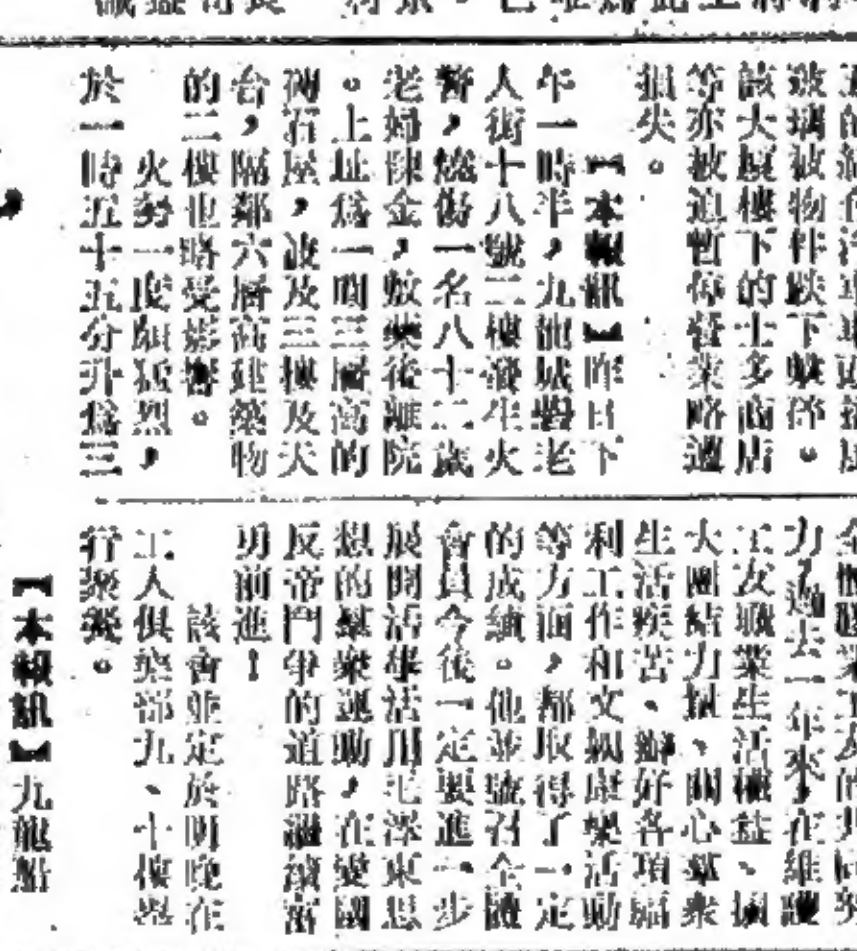 玻璃被物件跌下擊碎。
該大廈樓下的士多商店
等亦被迫暫停營業略遭
損失。
【本報訊】昨日下
午一時半，九龍城對老
人街十八號二樓發生火
警，燒傷一名八十二歲
老婦陳金，敷藥後離院
。上址為一間三層高的
磚石屋，波及三樓及天
台，隔鄰六層高建築物
的二樓也略受影響。
火勢一度頗猛烈，
於一時五十五分升為三
力過去一年來，在維護
工友職業生活權益、擴
大團結力量、關心羣衆
生活疾苦、辦好各項福
利工作和文娛康樂活動
等方面，都取得了一定
的成績。他並號召全體
會員今後一定要進一步
展開活學活用毛澤東思
想的羣衆運動，在愛國
反帝鬥爭的道路繼續奮
勇前進！
該會並定於明晚在
工人俱樂部九、十樓舉
行聚餐。
【本報訊】九龍船